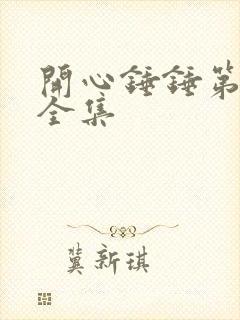 開心錘錘第
全集
冀新琪